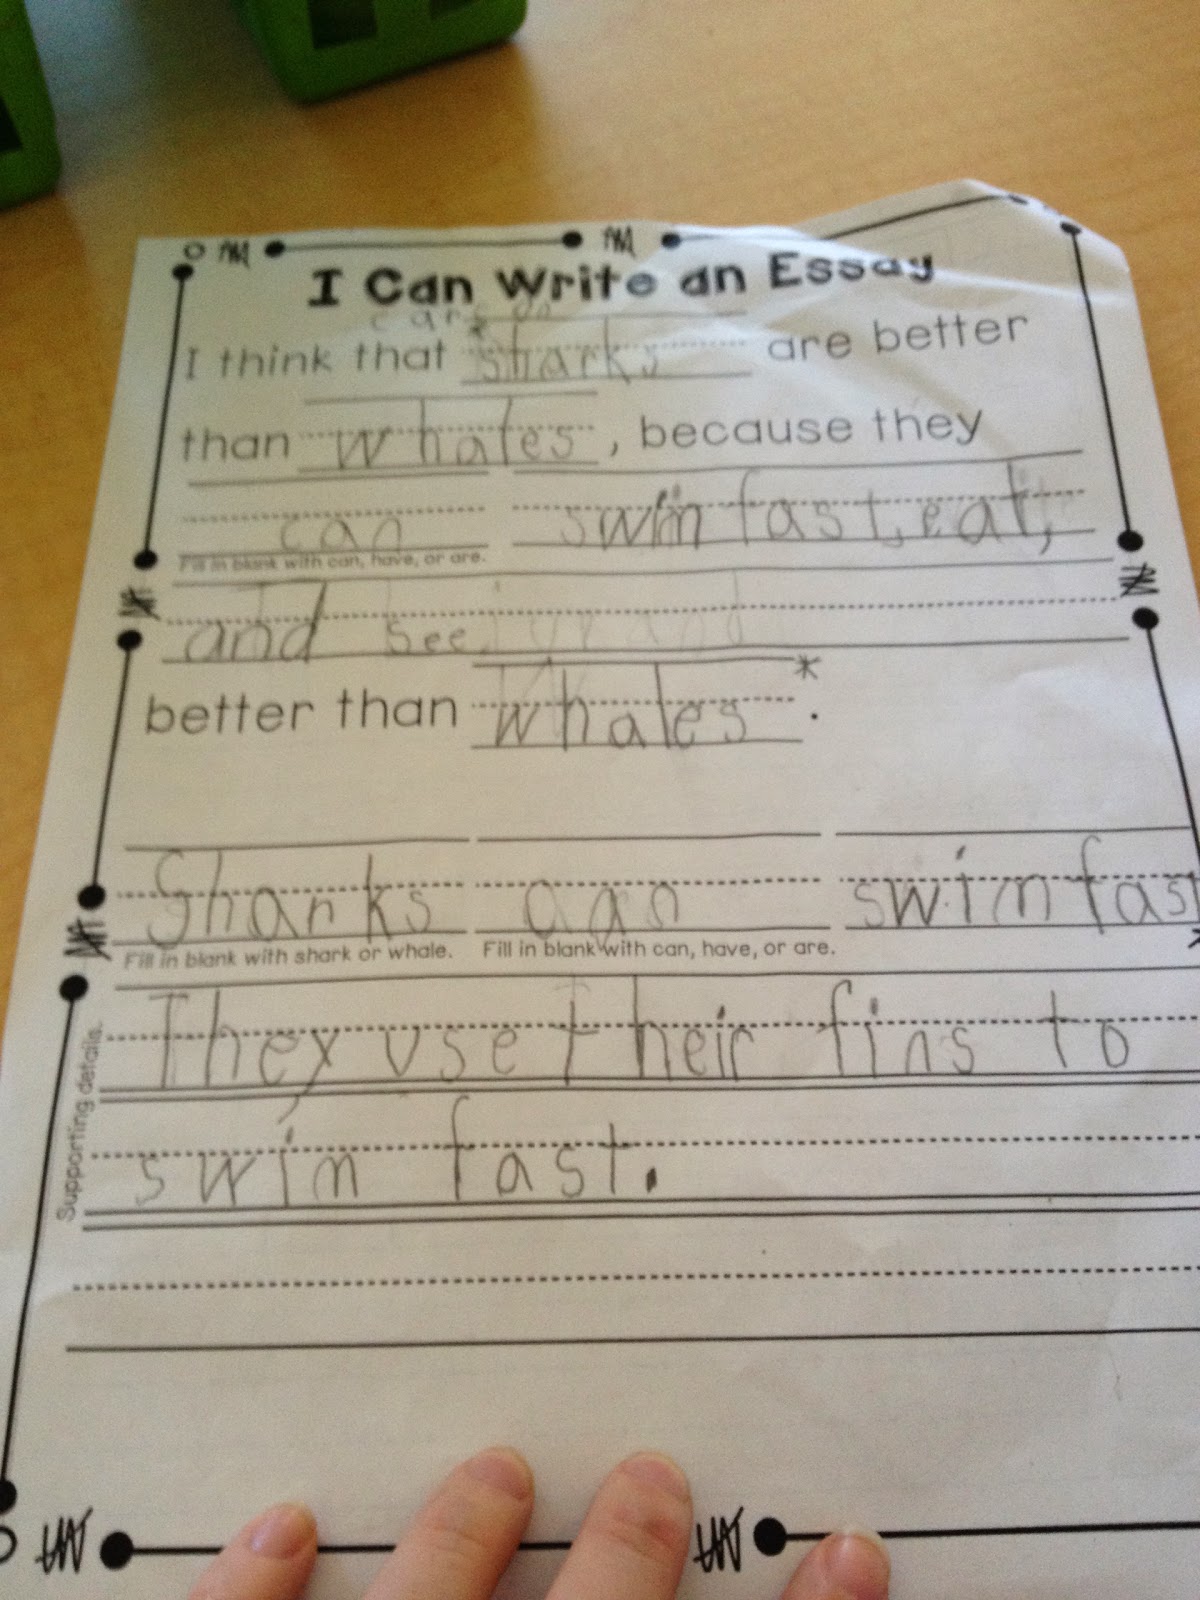 I Can Write an Essay
I think that sharks are better
than whales, because they
can swim fast, eat,
Fill in blank with can, have, or are.
and see
better than whales*.
Sharks can swim fast
Fill in blank with shark or whale. Fill in blank with can, have, or are.
Supporting details.
They use their fins to
swim fast.